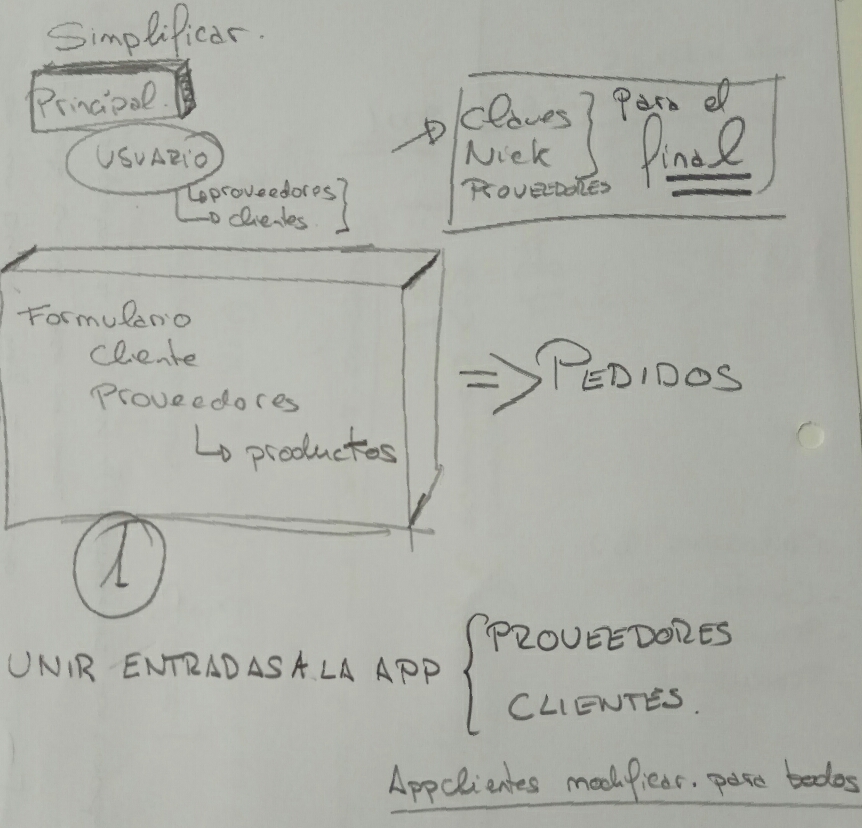 Simplificar.
Principal.
USUARIO
↳ proveedores
→ clientes.
→ Claves
Nick
PROVEEDORES
Para el
final
Formulario
Cliente
Proveedores
↳ productos
⇒ PEDIDOS
1
UNIR ENTRADAS A LA APP
PROVEEDORES
CLIENTES.
Appclientes modificar. para todos